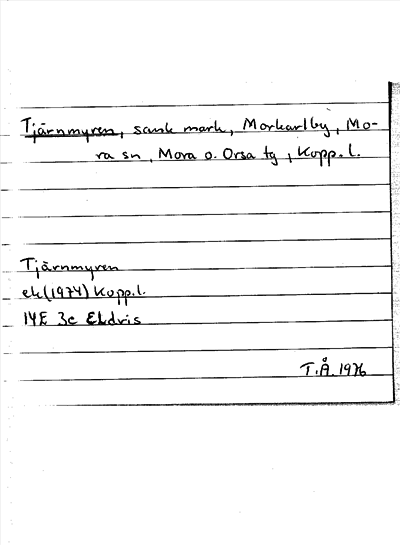 Tjärnmyren, sank mark, Morkarlby, Mo-
ra sn, Mora o. Orsa tg, Kopp.l.
Tjärnmyren
ek(1974) Kopp.l.
14E 3c Eldris
T.Å. 1976